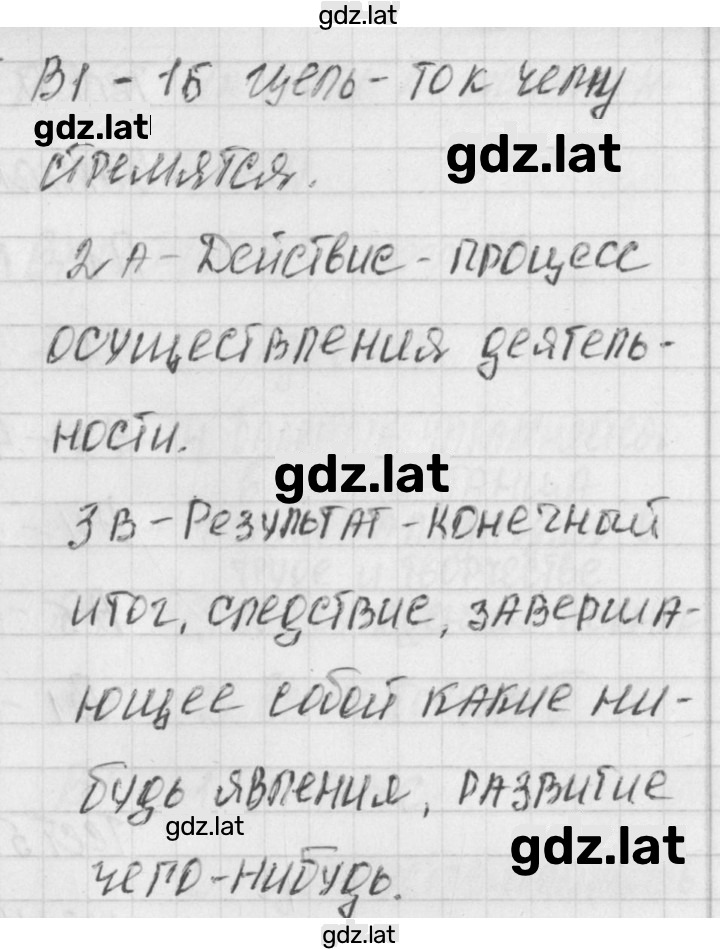 gdz.lat
В1 - 1Б Цель - то к чему
gdz.lat
gdz.lat
стремятся.
2А - Действие - процесс
осуществления деятель-
ности.
gdz.lat
3В - Результат - конечный
итог, следствие, заверша-
ющее собой какие ни-
будь явления, развитие
gdz.lat
gdz.lat
чего-нибудь.
gdz.lat